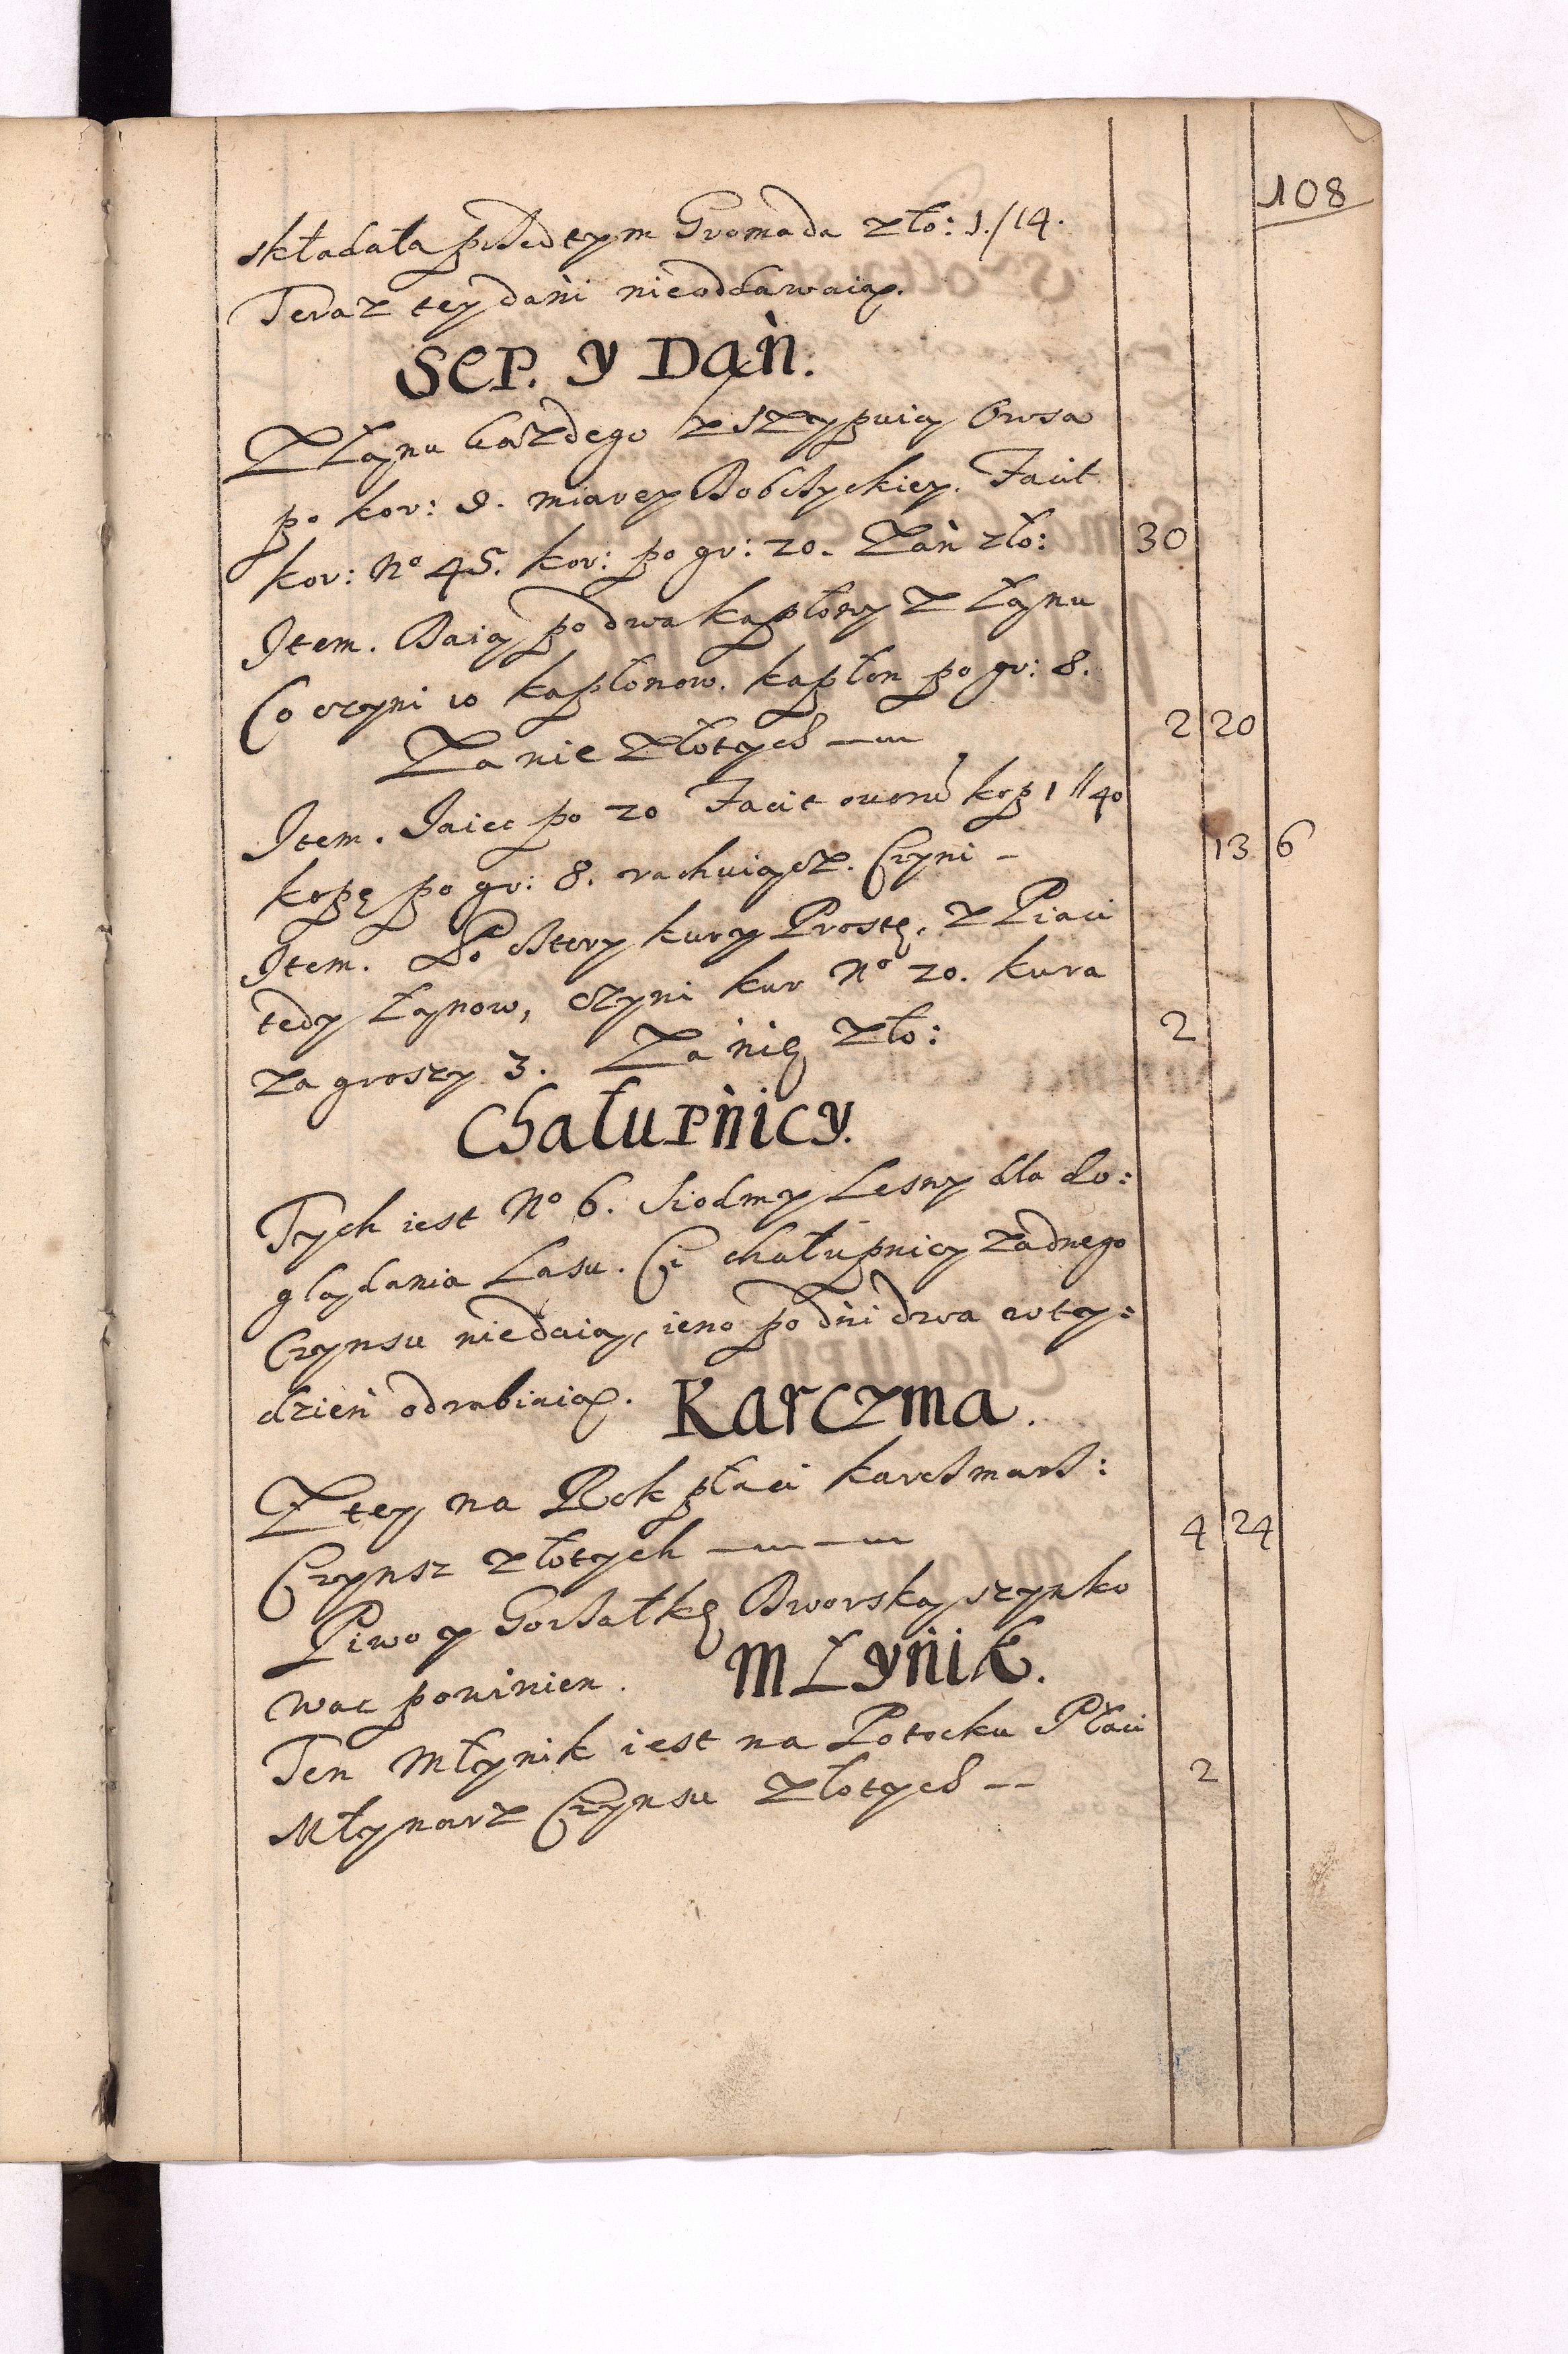 108
składała przedtym Gromada zło: 1./14.
Teraz tey dani nieoddawaią.
Sep. y Dań.
Z Łanu każdego zszypuią Owsa
po kor: 9. miarey Bobczyckiey. Facit
kor: No 45. kor: po gr: 20. Zań zło: 30
Item. Daią po dwa kapłony z Łanu
Co czyni 10 kapłonow. kapłon po gr: 8.
Za nie złotych — 2 20
Item. Iaiec po 20 Facit ovorũ kop 1 // 40
kopę po gr: 8. rachuiącz. Czyni - 13 6
Item. Po cztery kury Prostę, z Piaci
tedy Łanow, czyni kur No 20. kura
za groszy 3. Za nię zło: 2
Chałupnicy.
Tych iest No 6. Siodmy Lesny dla do:
glądania Lasu. Ci chałupnicy żadnego
Czynsu niedaią, ieno po dni dwa w ty:
dzień odrabiaią. Karczma.
Z tey na Rok płaci karczmarz:
Czynsz złotych — — 4 24
Piwo y Gorzałkę Dworską szynko
wac powinien. Młynik.
Ten Młynik iest na Potocku Płaci
Młynarz Czynsu złotych -- 2